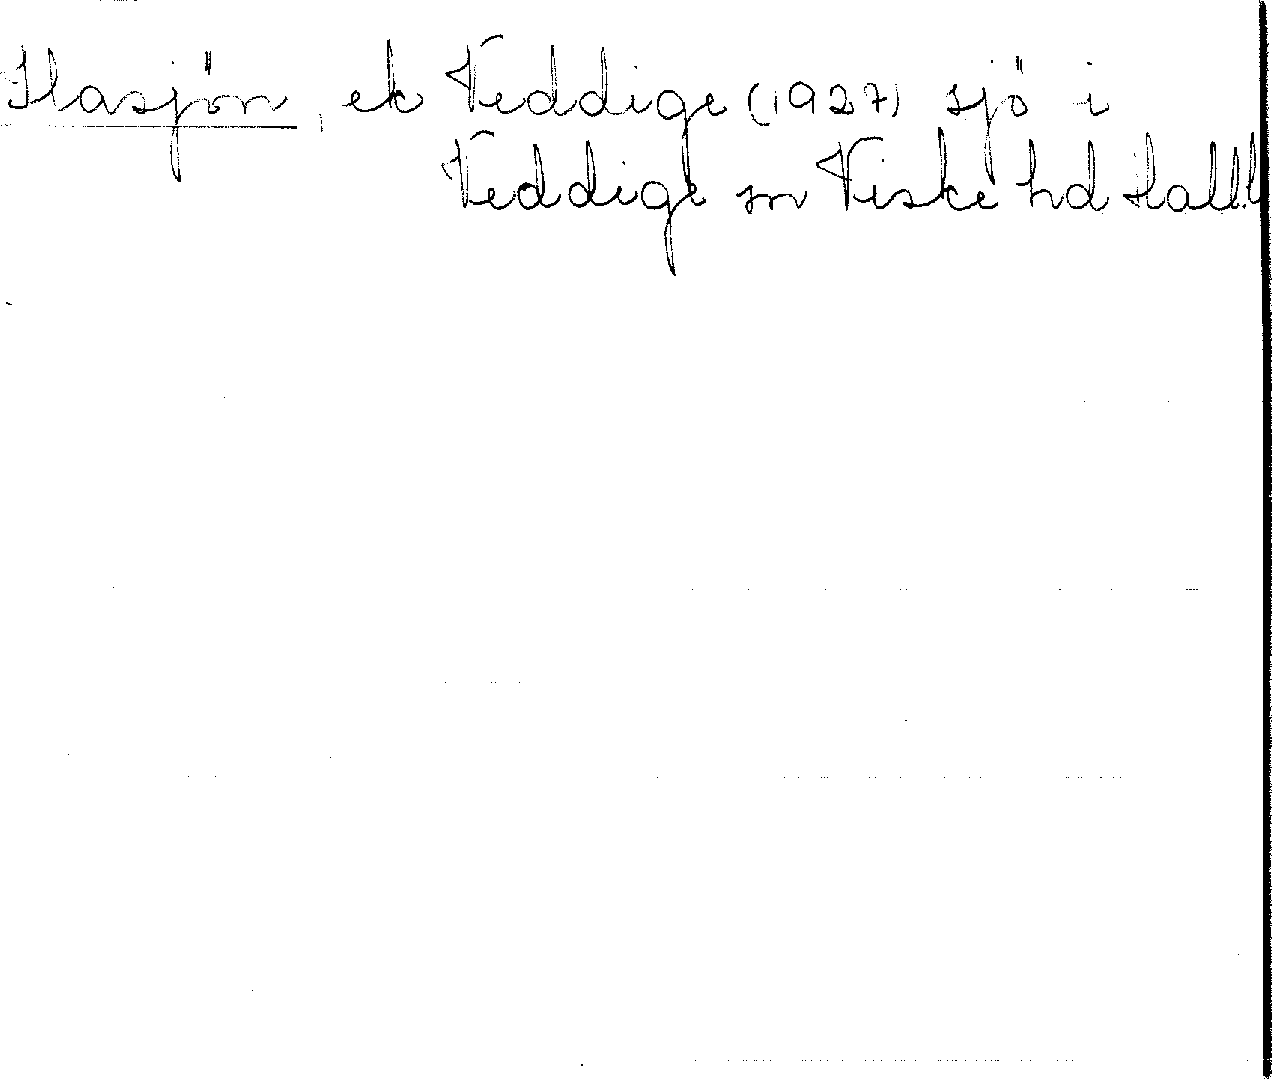 Hasjön, ek Veddige (1927) sjö i
Veddige sn Viske hd Hall.l